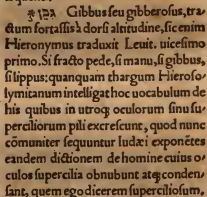 גבן Gibbus seu gibberosus, tra
ctum fortassis à dorsi altitudine, sic enim
Hieronymus traduxit Leuit. uicesimo
primo. Si fracto pede, si manu, si gibbus,
si lippus: quanquam thargum Hieroso/
lymitanum intelligat hoc uocabulum de
his quibus in utroq; oculorum sinu su/
perciliorum pili excrescunt, quod nunc
cōmuniter sequuntur Iudæi exponētes
eandem dictionem de homine cuius o/
culos supercilia obnubunt atq; conden/
sant, quem ego dicerem superciliosum,